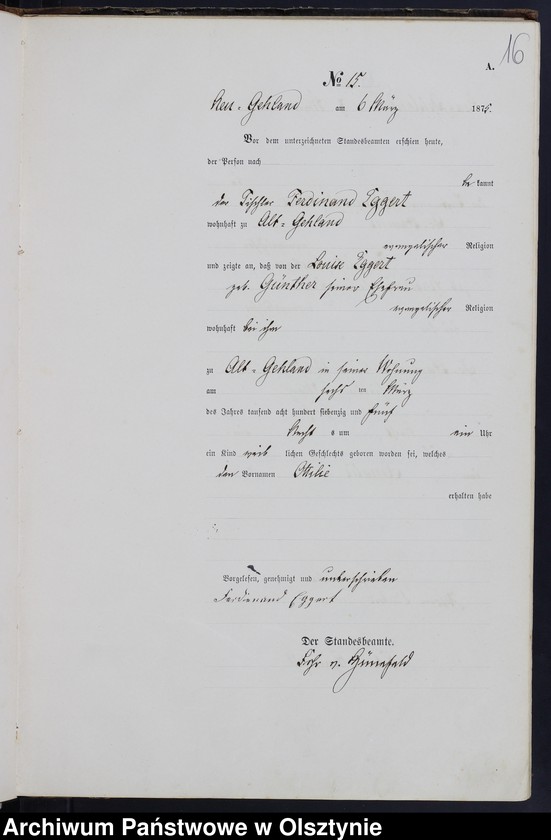 16
A.
No 15.
Neu-Gehland am 6 März 1875.
Vor dem unterzeichneten Standesbeamten erschien heute,
der Person nach
be kannt
der Tischler Ferdinand Eggert
wohnhaft zu Alt-Gehland
evangelischer Religion
und zeigte an, daß von der Louise Eggert
geb. Günther seiner Ehefrau
evangelischer Religion
wohnhaft bei ihm
zu Alt-Gehland in seiner Wohnung
am sechs ten März
des Jahres tausend acht hundert siebenzig und fünf
Nacht s um ein Uhr
ein Kind weib lichen Geschlechts geboren worden sei, welches
den Vornamen Ottilie
erhalten habe
Vorgelesen, genehmigt und unterschrieben
Ferdinand Eggert
Der Standesbeamte.
Frhr v. Hünefeld
Archiwum Państwowe w Olsztynie